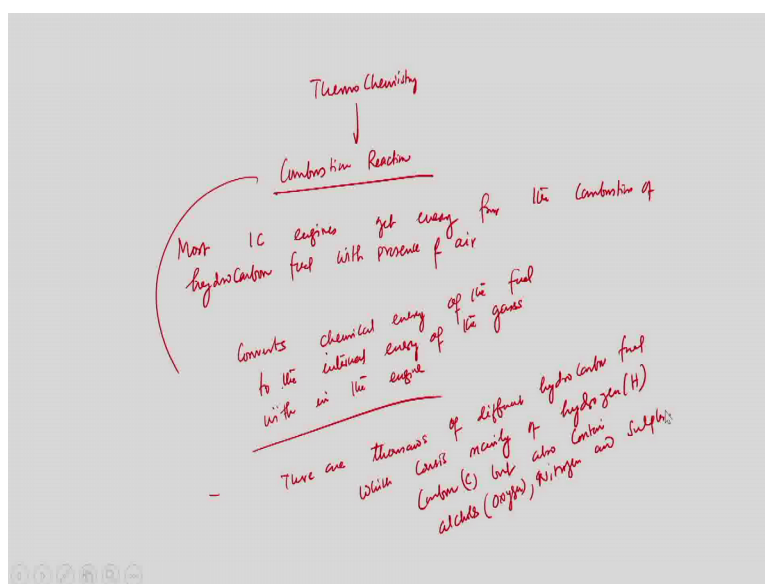 Thermo Chemistry
Combustion Reaction
Most IC engines get energy from the combustion of
hydrocarbon fuel with presence of air
Converts chemical energy of the fuel
to the internal energy of the gases
with in the engine
- There are thousands of different hydrocarbon fuel
which consis mainly of hydrogen (H)
Carbon (C) but also contain
alchols (oxygen), Nitrogen and sulphur